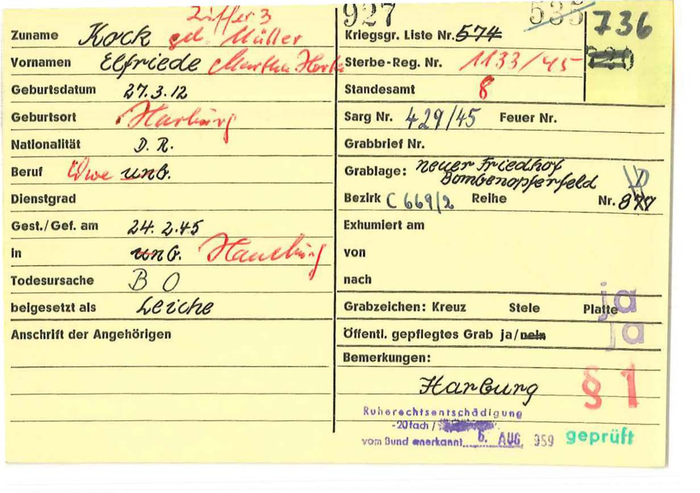 Ziffer 3
Zuname Kock geb. Müller
Vornamen Elfriede Martha Herta
Geburtsdatum 27.3.12
Geburtsort Harburg
Nationalität D. R.
Beruf Wwe unb.
Dienstgrad
Gest./Gef. am 24.2.45
in unb. Hamburg
Todesursache B O
beigesetzt als Leiche
Anschrift der Angehörigen
927 535 736
Kriegsgr. Liste Nr. 574
Sterbe-Reg. Nr. 1133/45
Standesamt 8
Sarg Nr. 429/45 Feuer Nr.
Grabbrief Nr.
Grablage: neuer Friedhof
Bombenopferfeld
Bezirk C 669/2 Reihe Nr.
Exhumiert am
von
nach
ja
Grabzeichen: Kreuz Stele Platte
ja
Öffentl. gepflegtes Grab ja/nein
Bemerkungen:
Harburg § 1
Ruherechtsentschädigung
-20fach /
vom Bund anerkannt 6. AUG. 959 geprüft